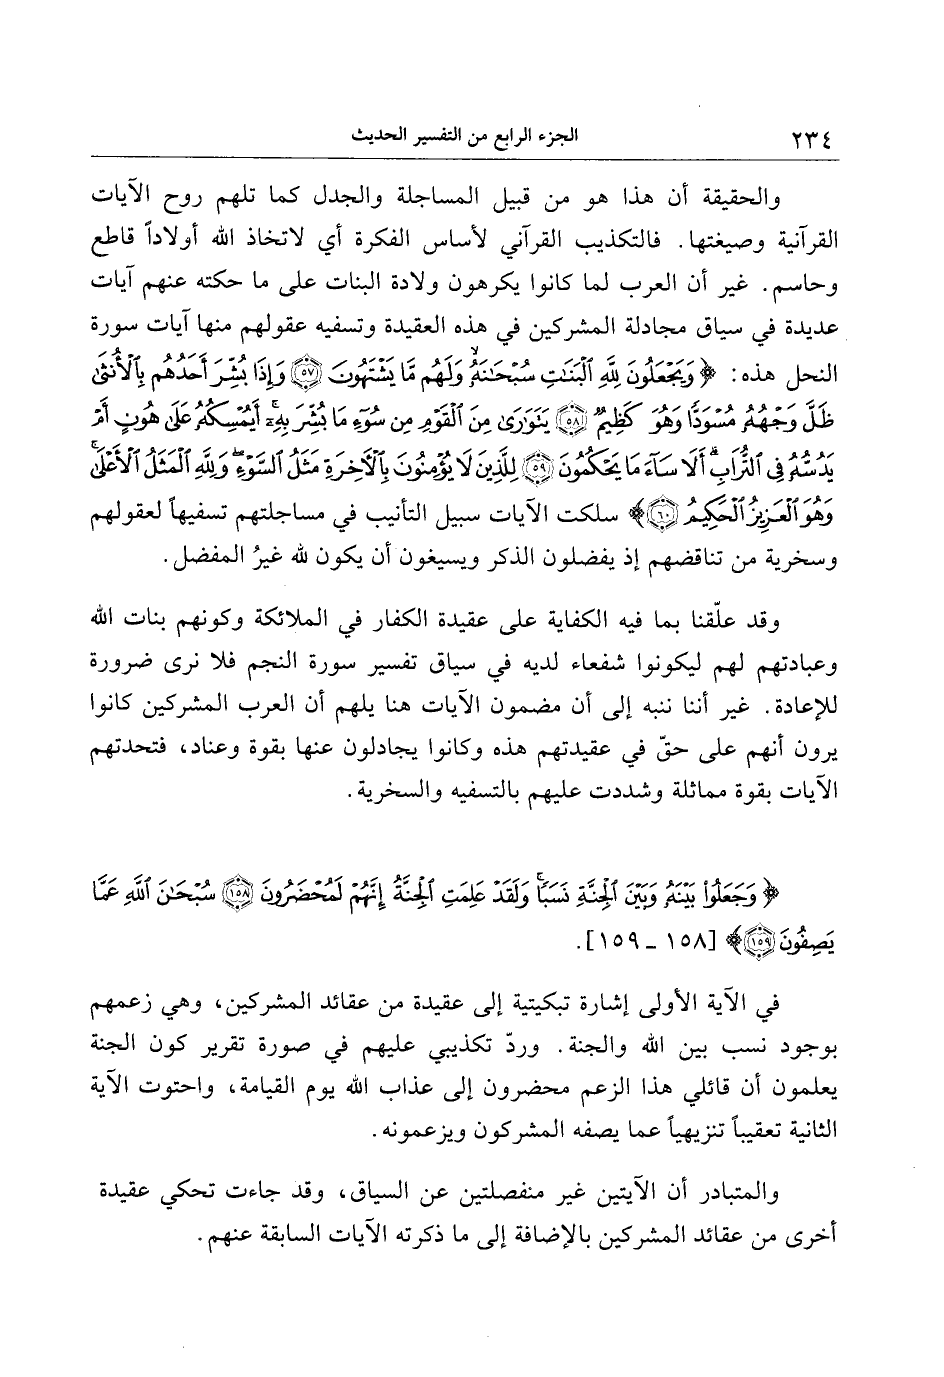 ٢٣٤ الجزء الرابع من التفسير الحديث
والحقيقة أن هذا هو من قبيل المساجلة والجدل كما تلهم روح الآيات
القرآنية وصيغتها. فالتكذيب القرآني لأساس الفكرة أي لاتخاذ الله أولاداً قاطع
وحاسم. غير أن العرب لما كانوا يكرهون ولادة البنات على ما حكته عنهم آيات
عديدة في سياق مجادلة المشركين في هذه العقيدة وتسفيه عقولهم منها آيات سورة
النحل هذه: ﴿وَيَجْعَلُونَ لِلَّهِ ٱلْبَنَٰتِ سُبْحَٰنَهُۥ ۙ وَلَهُم مَّا يَشْتَهُونَ ٥٧ وَإِذَا بُشِّرَ أَحَدُهُم بِٱلْأُنثَىٰ
ظَلَّ وَجْهُهُۥ مُسْوَدًّا وَهُوَ كَظِيمٌ ٥٨ يَتَوَٰرَىٰ مِنَ ٱلْقَوْمِ مِن سُوٓءِ مَا بُشِّرَ بِهِۦٓ ۚ أَيُمْسِكُهُۥ عَلَىٰ هُونٍ أَمْ
يَدُسُّهُۥ فِى ٱلتُّرَابِ ۗ أَلَا سَآءَ مَا يَحْكُمُونَ ٥٩ لِلَّذِينَ لَا يُؤْمِنُونَ بِٱلْأَخِرَةِ مَثَلُ ٱلسَّوْءِ ۖ وَلِلَّهِ ٱلْمَثَلُ ٱلْأَعْلَىٰ ۚ
وَهُوَ ٱلْعَزِيزُ ٱلْحَكِيمُ ٦٠﴾ سلكت الآيات سبيل التأنيب في مساجلتهم تسفيهاً لعقولهم
وسخرية من تناقضهم إذ يفضلون الذكر ويسيغون أن يكون لله غيرُ المفضل.
وقد علّقنا بما فيه الكفاية على عقيدة الكفار في الملائكة وكونهم بنات الله
وعبادتهم لهم ليكونوا شفعاء لديه في سياق تفسير سورة النجم فلا نرى ضرورة
للإعادة. غير أننا ننبه إلى أن مضمون الآيات هنا يلهم أن العرب المشركين كانوا
يرون أنهم على حقّ في عقيدتهم هذه وكانوا يجادلون عنها بقوة وعناد، فتحدتهم
الآيات بقوة مماثلة وشددت عليهم بالتسفيه والسخرية.
﴿وَجَعَلُوا۟ بَيْنَهُۥ وَبَيْنَ ٱلْجِنَّةِ نَسَبًا ۚ وَلَقَدْ عَلِمَتِ ٱلْجِنَّةُ إِنَّهُمْ لَمُحْضَرُونَ ١٥٨ سُبْحَٰنَ ٱللَّهِ عَمَّا
يَصِفُونَ ١٥٩﴾ [١٥٨ ـ ١٥٩].
في الآية الأولى إشارة تبكيتية إلى عقيدة من عقائد المشركين، وهي زعمهم
بوجود نسب بين الله والجنة. وردّ تكذيبي عليهم في صورة تقرير كون الجنة
يعلمون أن قائلي هذا الزعم محضرون إلى عذاب الله يوم القيامة، واحتوت الآية
الثانية تعقيباً تنزيهياً عما يصفه المشركون ويزعمونه.
والمتبادر أن الآيتين غير منفصلتين عن السياق، وقد جاءت تحكي عقيدة
أخرى من عقائد المشركين بالإضافة إلى ما ذكرته الآيات السابقة عنهم.